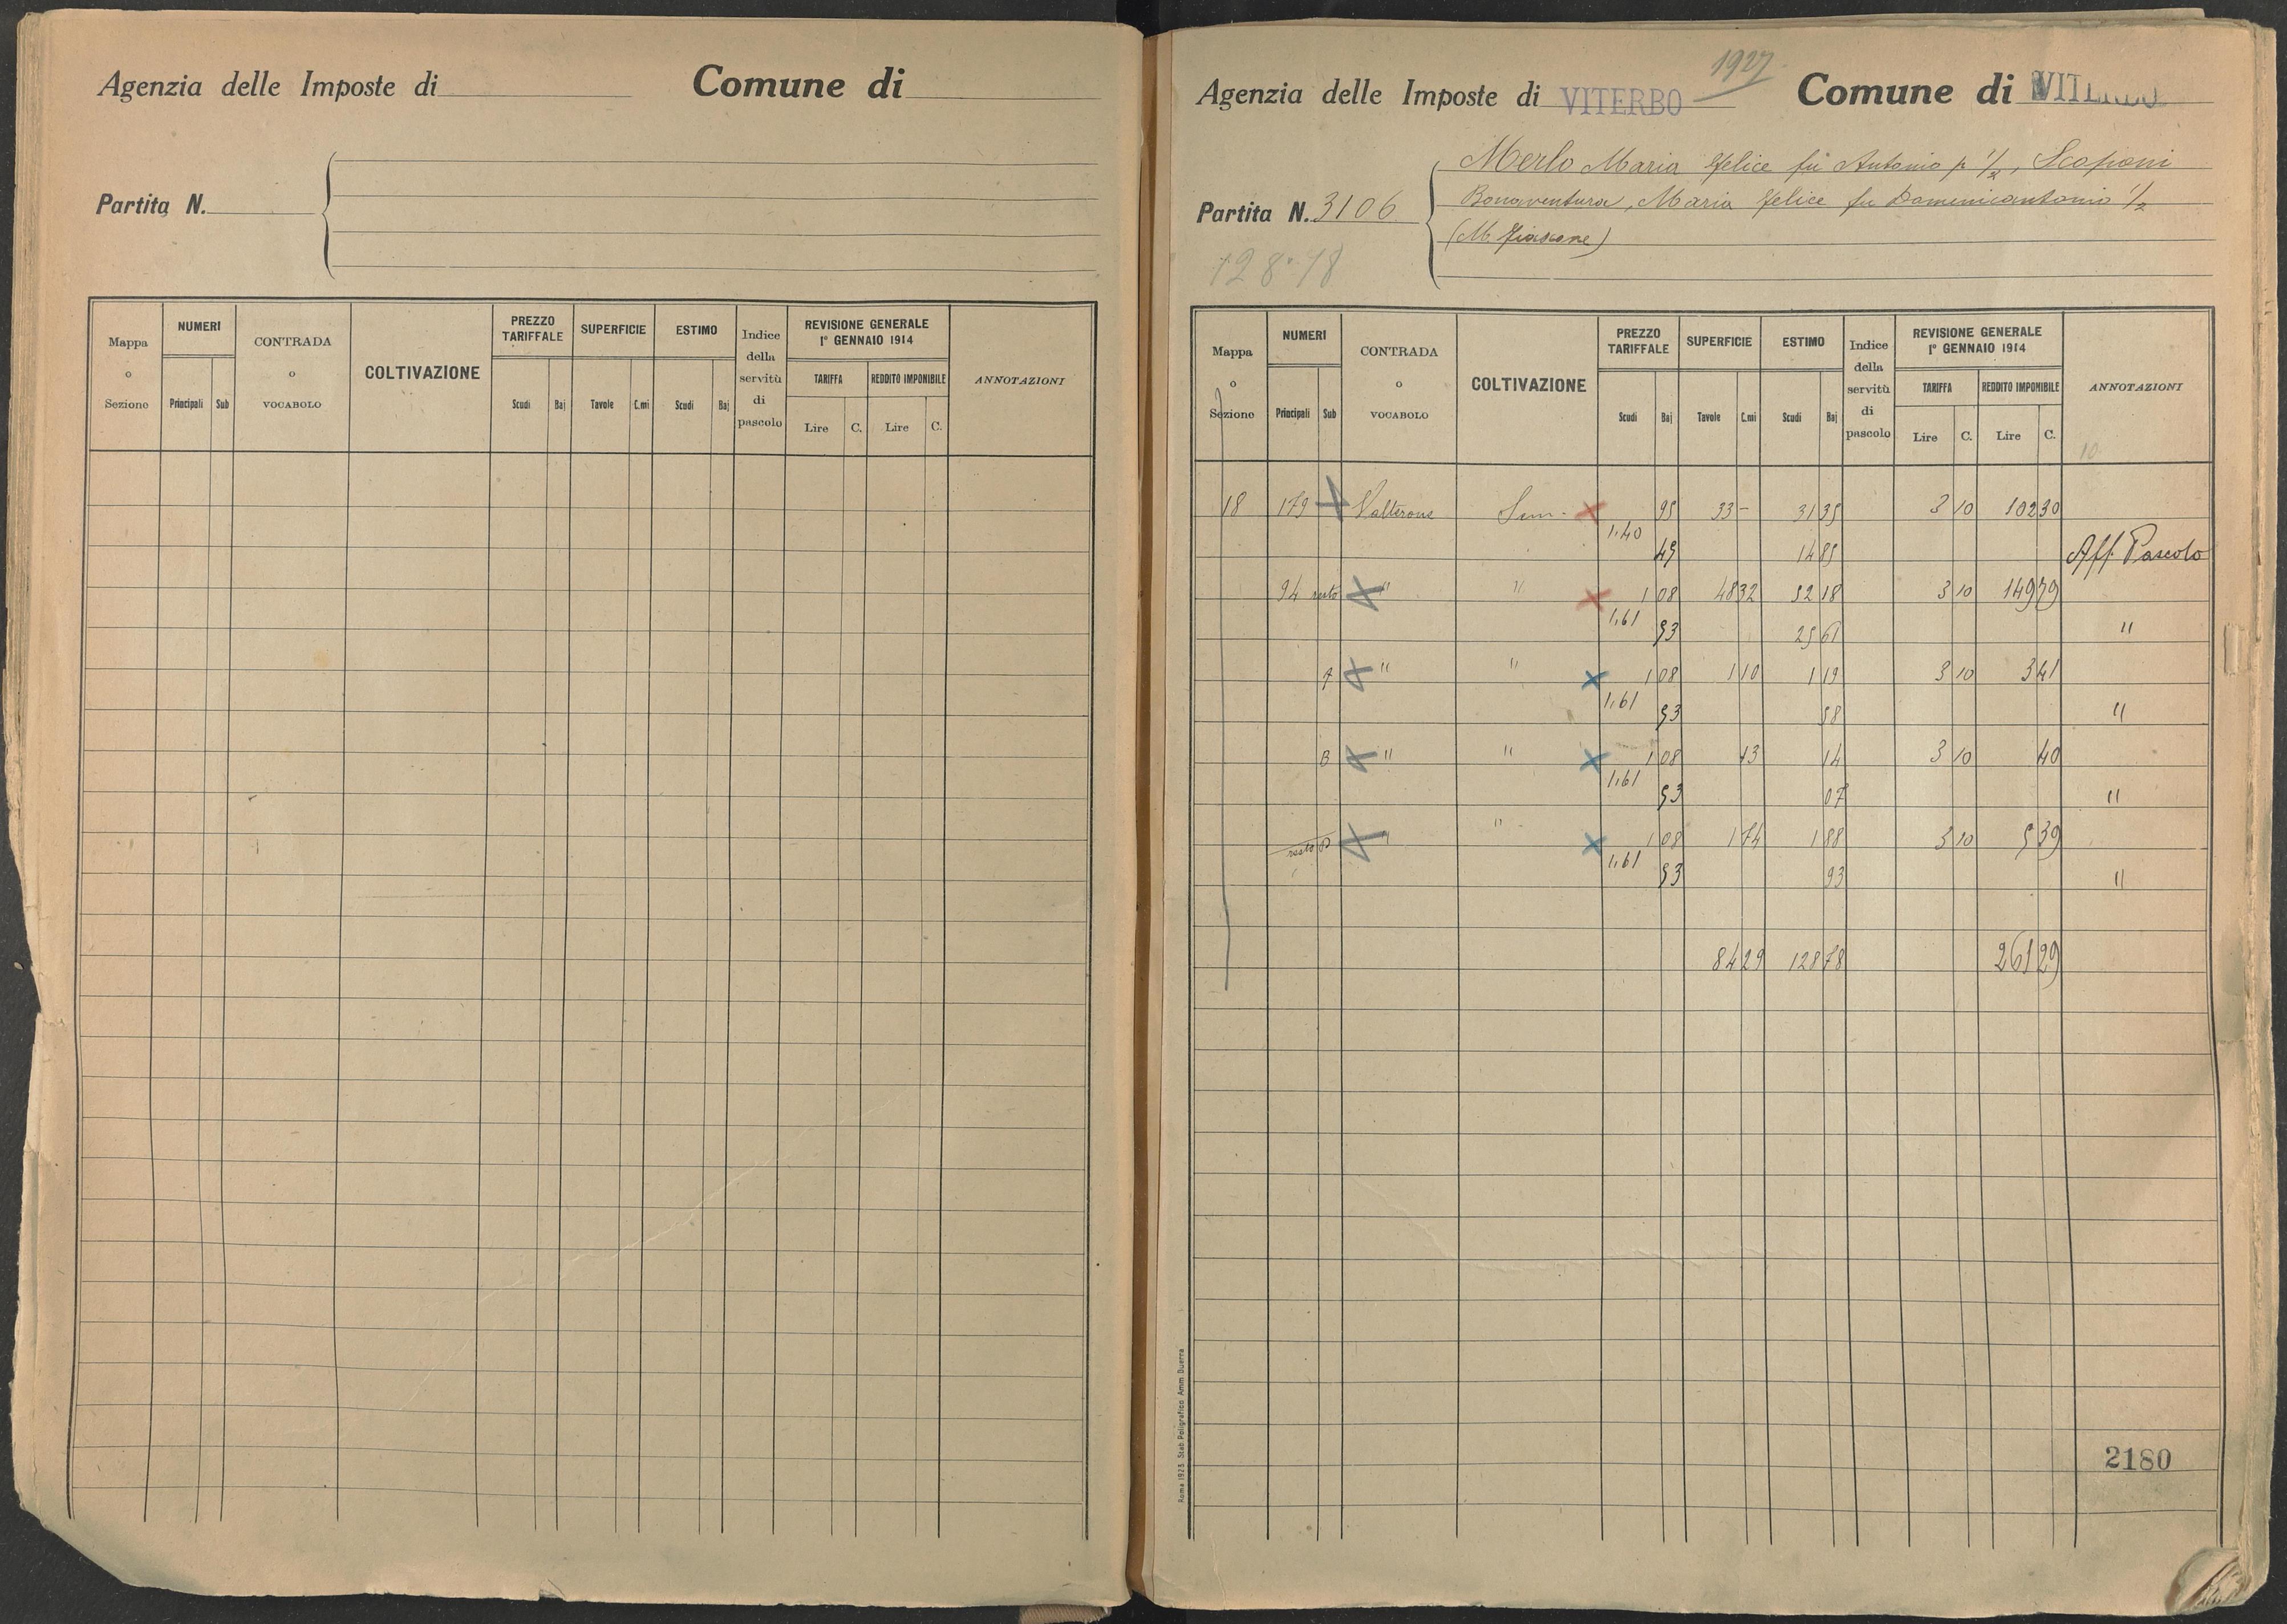 Agenzia delle Imposte di
Comune di
Partita N.
Mappa o Sezione
NUMERI
Principali Sub
CONTRADA o VOCABOLO
COLTIVAZIONE
PREZZO TARIFFALE
Scudi Baj
SUPERFICIE
Tavole C.mi
ESTIMO
Scudi Baj
Indice della servitù di pascolo
REVISIONE GENERALE
1° GENNAIO 1914
TARIFFA
Lire C.
REDDITO IMPONIBILE
Lire C.
ANNOTAZIONI
1927
Agenzia delle Imposte di VITERBO
Comune di VITERBO
Partita N. 3106
128.78
Merlo Maria Felice fu Antonio p 1/2, Scoponi
Bonaventura, Maria Felice fu Domenicantonio 1/2
(M. Fiascone)
Mappa o Sezione
NUMERI
Principali Sub
CONTRADA o VOCABOLO
COLTIVAZIONE
PREZZO TARIFFALE
Scudi Baj
SUPERFICIE
Tavole C.mi
ESTIMO
Scudi Baj
Indice della servitù di pascolo
REVISIONE GENERALE
1° GENNAIO 1914
TARIFFA
Lire C.
REDDITO IMPONIBILE
Lire C.
ANNOTAZIONI
10
18 179 Valterone Sem. 95 33 - 31 35 3 10 102 30
1.40 45 14 85 Aff. Pascolo
94 resto " " 1 08 48 32 52 18 3 10 149 79
1.61 53 25 61 "
A " " 1 08 1 10 1 19 3 10 3 41
1.61 53 58 "
B " " 1 08 13 14 3 10 40
1.61 53 07 "
resto " " 1 08 1 74 1 88 3 10 5 39
1.61 53 93 "
84 29 128 78 261 29
2180
Roma 1925. Stab. Poligrafico Amm. Guerra